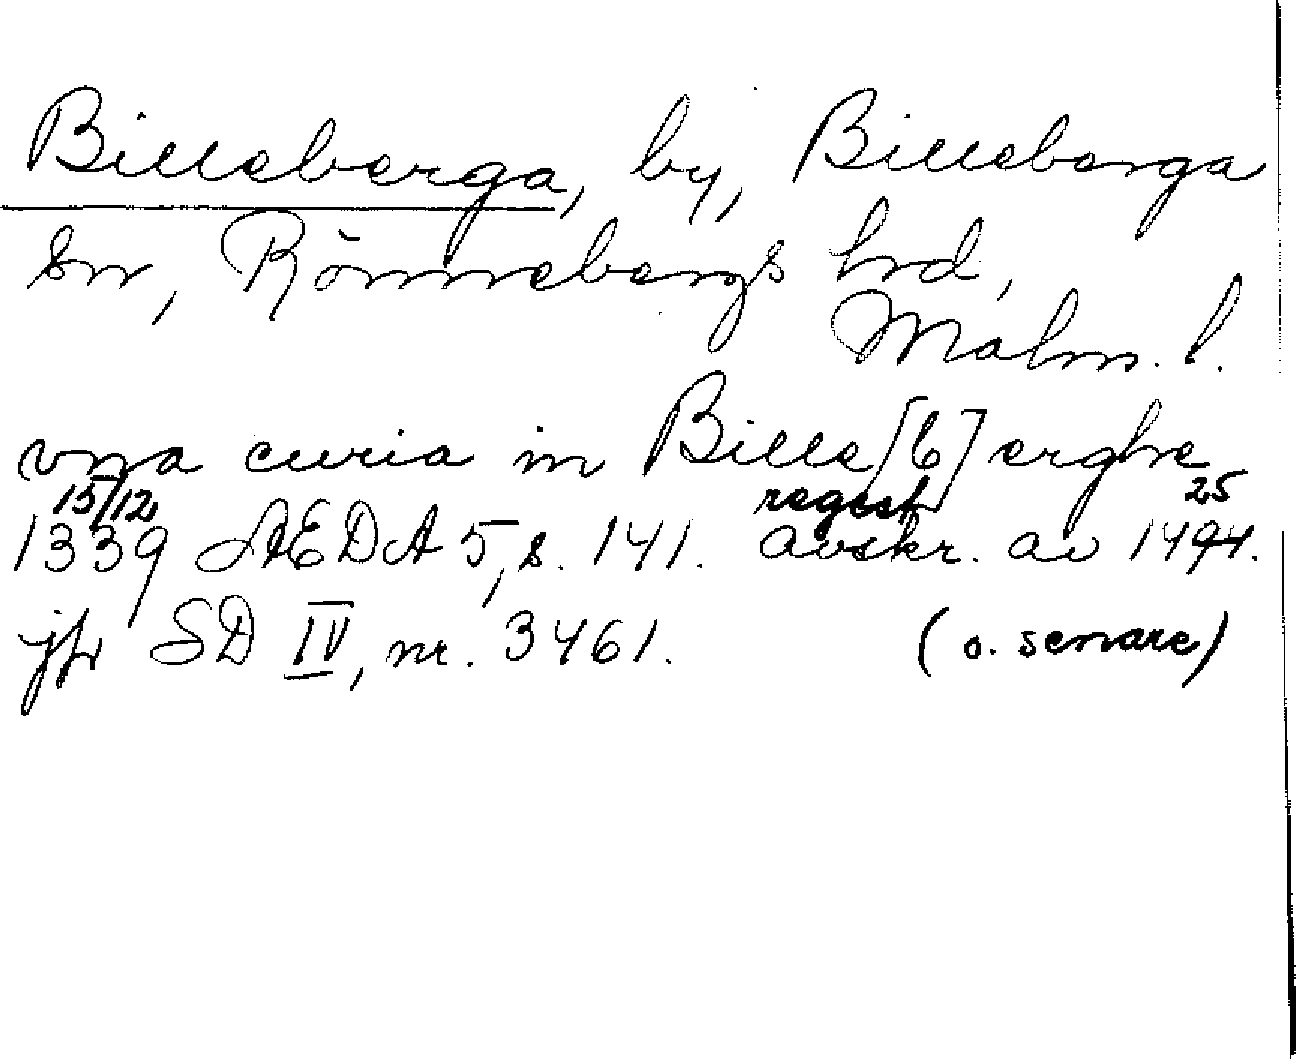 Billeberga, by, Billeberga
sn, Rönnebergs hrd,
Malm. l.
vna curia in Bille[b]erghe
15/12 regest 25
1339 AEDA 5, s. 141. avskr. av 1494.
jfr SD IV, nr. 3461. (o. senare)